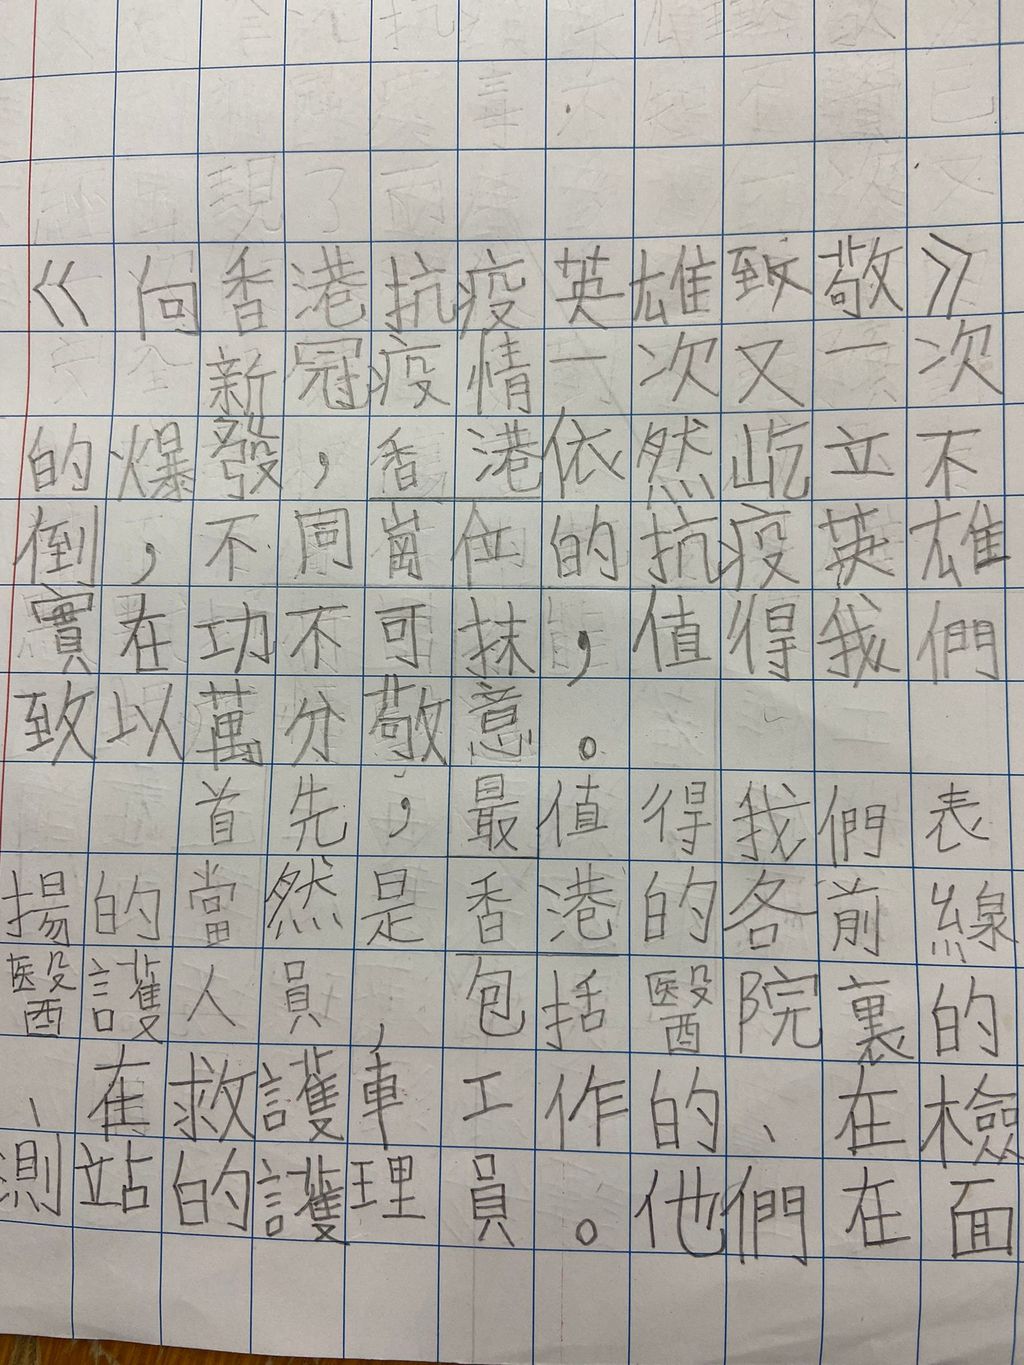 《向香港抗疫英雄致敬》
新冠疫情一次又一次
的爆發，香港依然屹立不
倒，不同崗位的抗疫英雄
實在功不可抹，值得我們
致以萬分敬意。
首先，最值得我們表
揚的當然是香港的各前線
醫護人員，包括醫院裏的
、在救護車工作的、在檢
測站的護理員。他們在面